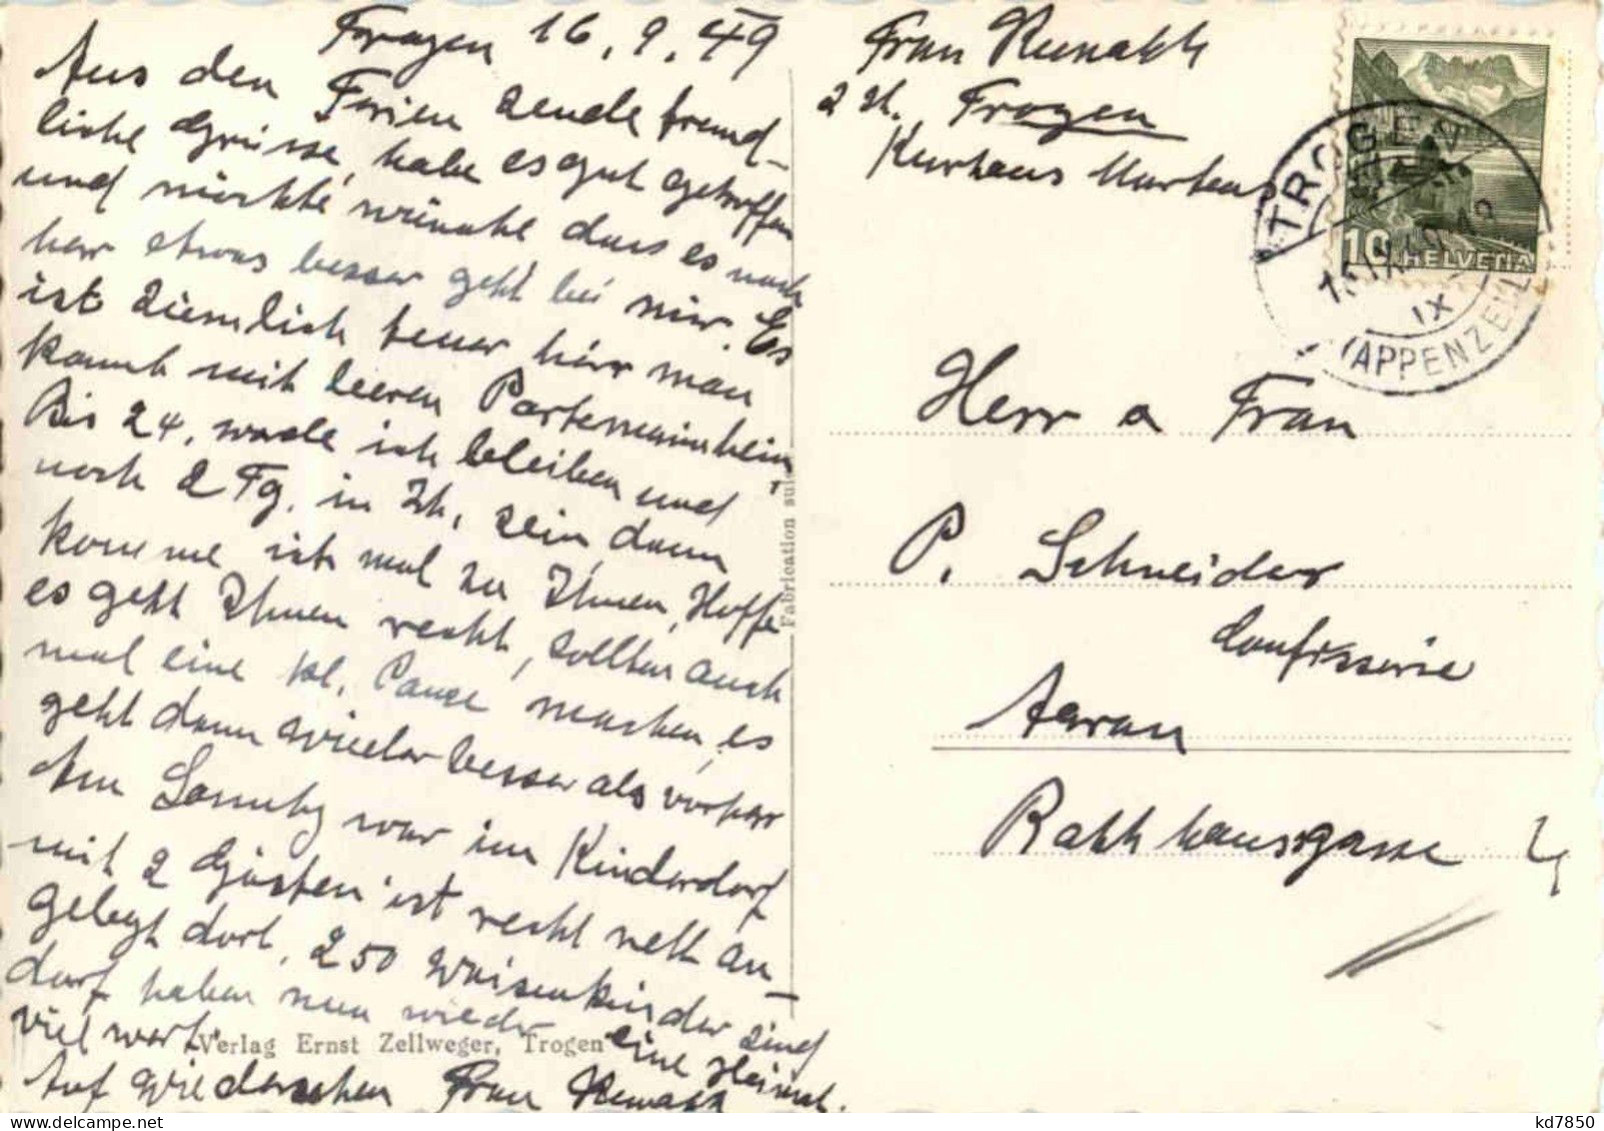 Trogen 16.9.49
Aus den Ferien sende freund-
liche Grüsse, habe es gut getroffen
und möchte wünsche dass es nach
her etwas besser geht bei mir. Es
ist ziemlich teuer hier man
kommt mit leeren Portemainhein,
Bis 24. werde ich bleiben und
noch 2 Tg. in Zh. sein, dann
komme ich mal zu Ihnen, Hoffe
es geht Ihnen recht, sollten auch
mal eine kl. Pause machen, es
geht dann wieder besser als vorher
Am Samstg war im Kinderdorf
mit 2 Gästen ist recht nett an-
gelegt dort, 250 Waisenkinder sind
dort haben nun wieder eine Heimat.
viel wert.
Auf Wiedersehen Frau
Verlag Ernst Zellweger, Trogen
Fabrication sui
Frau
z. Zt. Trogen
Kurhaus
Herr u Frau
P. Schneider
Confisserie
Aarau
Rathhausgasse
TROGEN
IX
(APPENZELL)
10 HELVETIA
kd7850